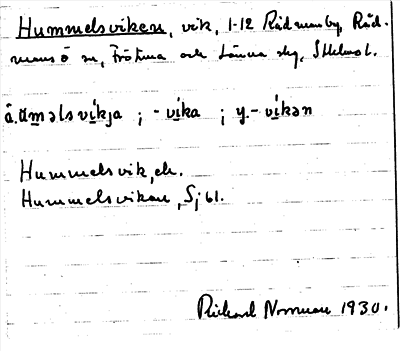 Hummelsviken, vik, 1-12 Rådmanby, Råd-
mansö sn, Frötuna och Länna skg, Sthlms l.
å. uməlsvikja ; -vika ; y. -vikən
Hummelsvik, ek.
Hummelsviken, Sj 61.
Rickard Norman 1930.